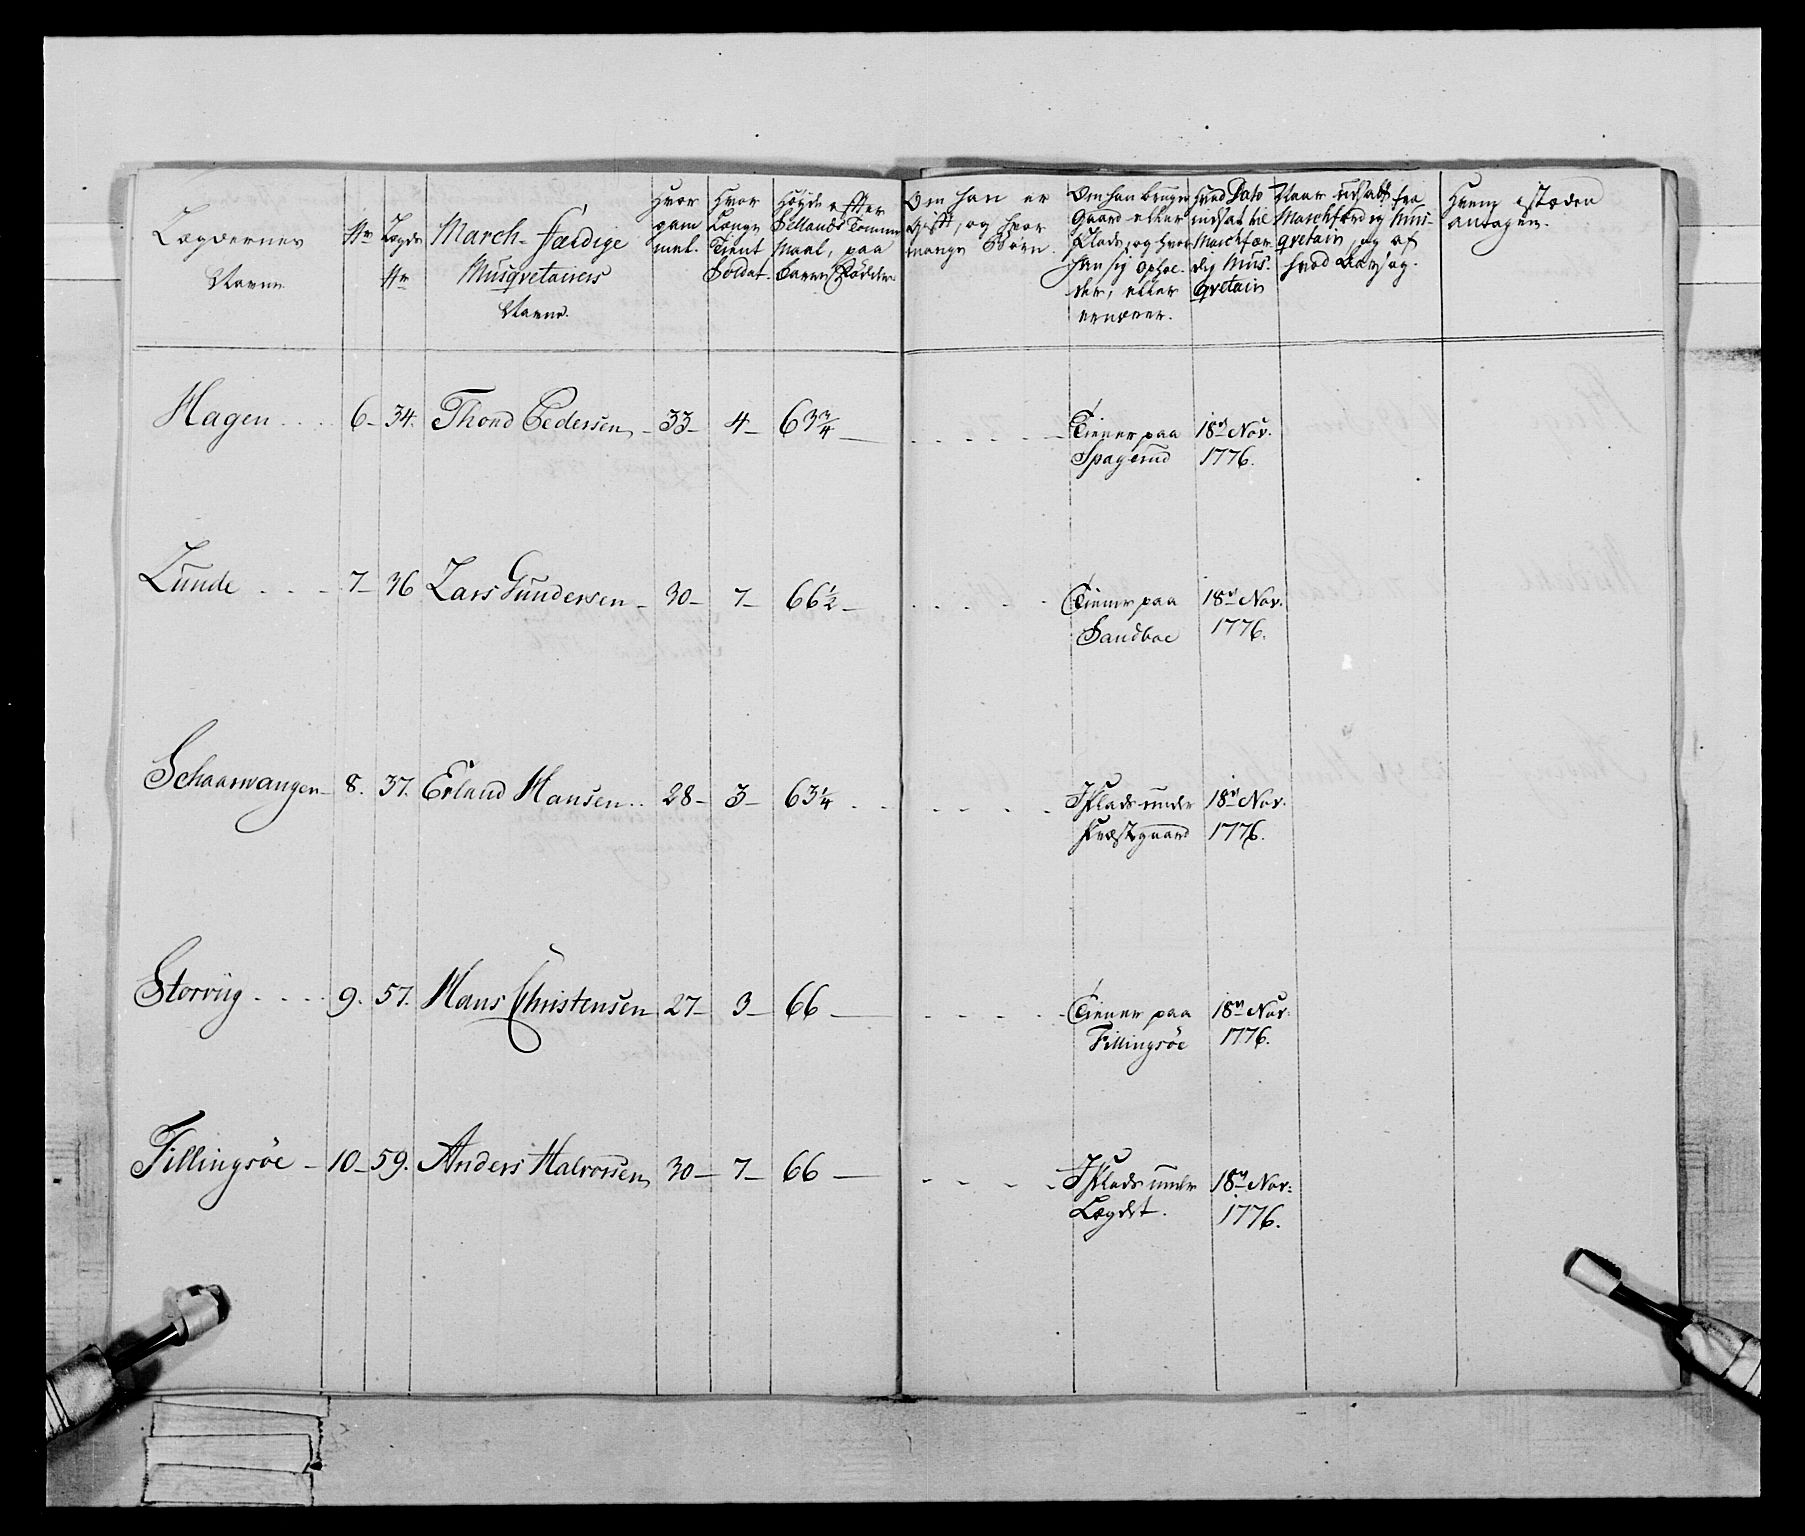 Lægdernes Navne
No
Lægds No
March-færdige Musqvetairers Navne.
Hvor gammel.
Hvor Længe Tient Soldat.
Høyde effter Sellands Tomme Maal, paa Barre Fødder.
Om han er Gift, og hvor mange Børn.
Om han bruger Gaard eller Plads, og hvor han sig ophol-der, eller ernærer.
hvad Dato indsat til Marchfær-dig Mus-qvetair
Naar udsatt fra Marchfærdig Mus-qvetair, og af hvad Aarsag.
Hvem isteden antagen.
Hagen .... 6- 34. Thord Pedersen - 33- 4- 63 3/4 — Tiener paa 18de Nov:
Spagerud 1776.
Lunde ... 7- 36 Lars Gundersen - 30- 7- 66 1/2 — Tiener paa 18de Nov:
Sandboe 1776.
Schaarwangen- 8. 37. Erland Hansen .. 28- 3- 63 1/4 .. J Plads under 18de Nov:
Præstgaard 1776.
Storviig .... 9. 57. Hans Christensen 27- 3- 66 — Tiener paa 18de Nov:
Fillingsøe 1776.
Fillingsøe - 10- 59. Anders Halvorsen 30- 7- 66 — J Plads under 18de Nov:
Lægdet. 1776.